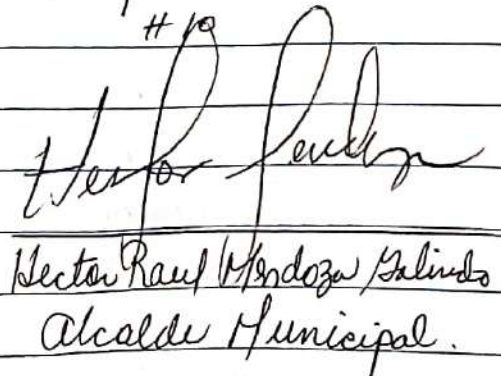 # 10
Hector Mendoza
Hector Raul Mendoza Galindo
Alcalde Municipal.